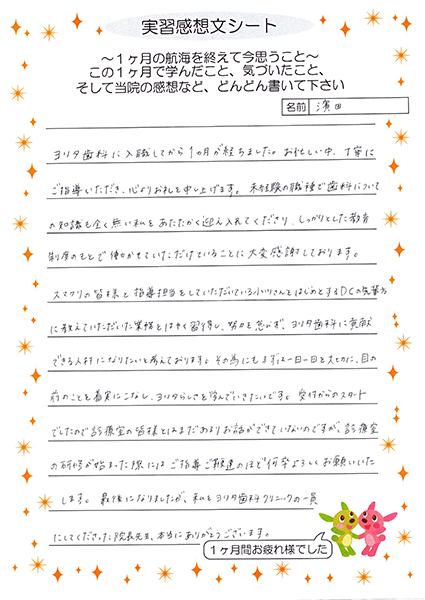 実習感想文シート
～1ヶ月の航海を終えて今思うこと～
この1ヶ月で学んだこと、気づいたこと、
そして当院の感想など、どんどん書いて下さい
名前 濱田
ヨリタ歯科に入職してから1カ月が経ちました。お忙しい中、丁寧に
ご指導いただき、心よりお礼を申し上げます。未経験の職種で歯科について
の知識も全く無い私をあたたかく迎え入れてくださり、しっかりとした教育
制度のもとで働かせていただけていることに大変感謝しております。
スマクリの皆様と指導担当をしていただいている小川さんをはじめとするDCの先輩方
に教えていただいた業務をはやく習得し、努力を怠らず、ヨリタ歯科に貢献
できる人材になりたいと考えております。その為にもまずは一日一日を大切に、目の
前のことを着実にこなし、ヨリタらしさを学んでいきたいです。受付からのスタート
でしたので診療室の皆様とはまだあまりお話ができていないのですが、診療室
の研修が始まった際にはご指導ご鞭撻のほど何卒よろしくお願いいた
します。最後になりましたが、私をヨリタ歯科クリニックの一員
にしてくださった院長先生、本当にありがとうございます。
1ヶ月間お疲れ様でした